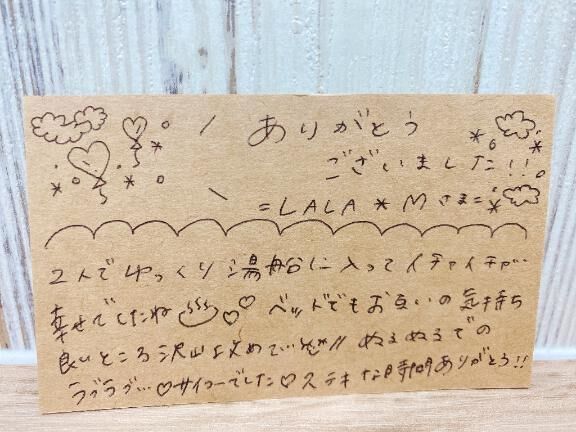 ありがとう
ございました!!
=LALA*Mさま=
2人でゆっくり湯船に入ってイチャイチャ…
幸せでしたね♨♡♡ベットでもお互いの気持ち
良いところ沢山攻めて…//ぬるぬるでの
ラブラブ…♡サイコーでした♡ステキな時間ありがとう!!